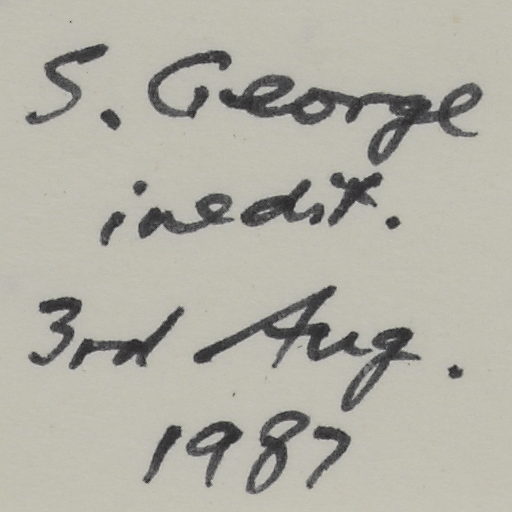 S. George
inedit.
3rd Aug.
1987